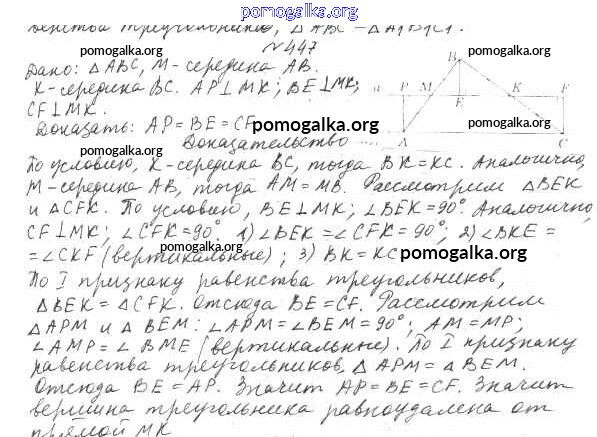 pomogalka.org
венства треугольников, △ABC = △A1B1C1.
№447
pomogalka.org
pomogalka.org
Дано: △ABC, M - середина AB.
K - середина BC. AP⊥MK; BE⊥MK;
CF⊥MK.
Доказать: AP = BE = CF
pomogalka.org
pomogalka.org
B
a P M K F
E
A C
Доказательство
По условию, K - середина BC, тогда BK = KC. Аналогично,
M - середина AB, тогда AM = MB. Рассмотрим △BEK
и △CFK. По условию, BE⊥MK; ∠BEK = 90°. Аналогично,
pomogalka.org
CF⊥MK; ∠CFK = 90°. 1) ∠BEK = ∠CFK = 90°; 2) ∠BKE =
= ∠CKF (вертикальные); 3) BK = KC
pomogalka.org
pomogalka.org
По I признаку равенства треугольников,
△BEK = △CFK. Отсюда BE = CF. Рассмотрим
△APM и △BEM: ∠APM = ∠BEM = 90°; AM = MP;
∠AMP = ∠BME (вертикальные). По I признаку
pomogalka.org
равенства треугольников, △APM = △BEM.
pomogalka.org
Отсюда BE = AP. Значит AP = BE = CF. Значит
вершина треугольника равноудалена от
прямой MK